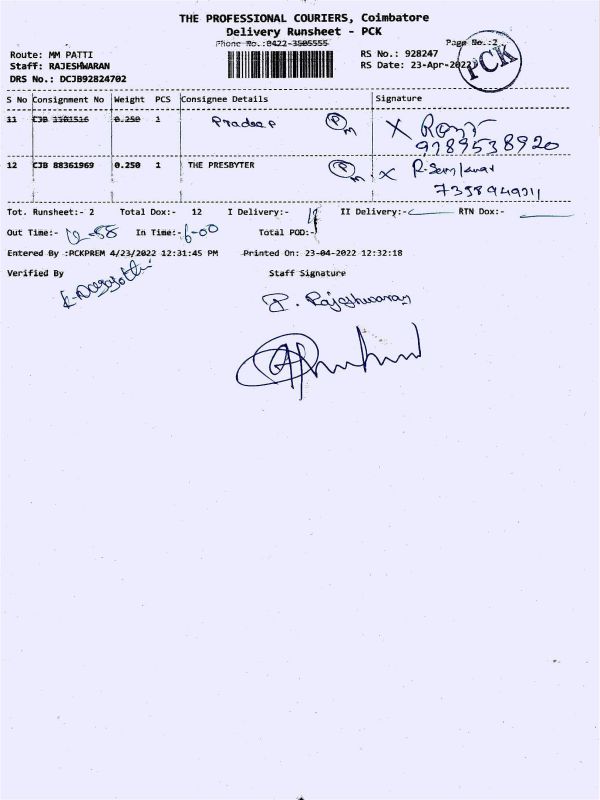 THE PROFESSIONAL COURIERS, Coimbatore
Delivery Runsheet - PCK
Phone No.:0422-3505555 Page No.:2
Route: MM PATTI RS No.: 928247
Staff: RAJESHWARAN RS Date: 23-Apr-2022
DRS No.: DCJB92824702 PCK
S No Consignment No Weight PCS Consignee Details Signature
11 CJB 1101516 0.250 1 Pradeep Pm X
9789538920
12 CJB 88361969 0.250 1 THE PRESBYTER Pm X
Tot. Runsheet:- 2 Total Dox:- 12 I Delivery:- II Delivery:- RTN Dox:-
Out Time:- In Time:- 6-00 Total POD:-
Entered By :PCKPREM 4/23/2022 12:31:45 PM Printed On: 23-04-2022 12:32:18
Verified By Staff Signature
P. Rajeshwaran